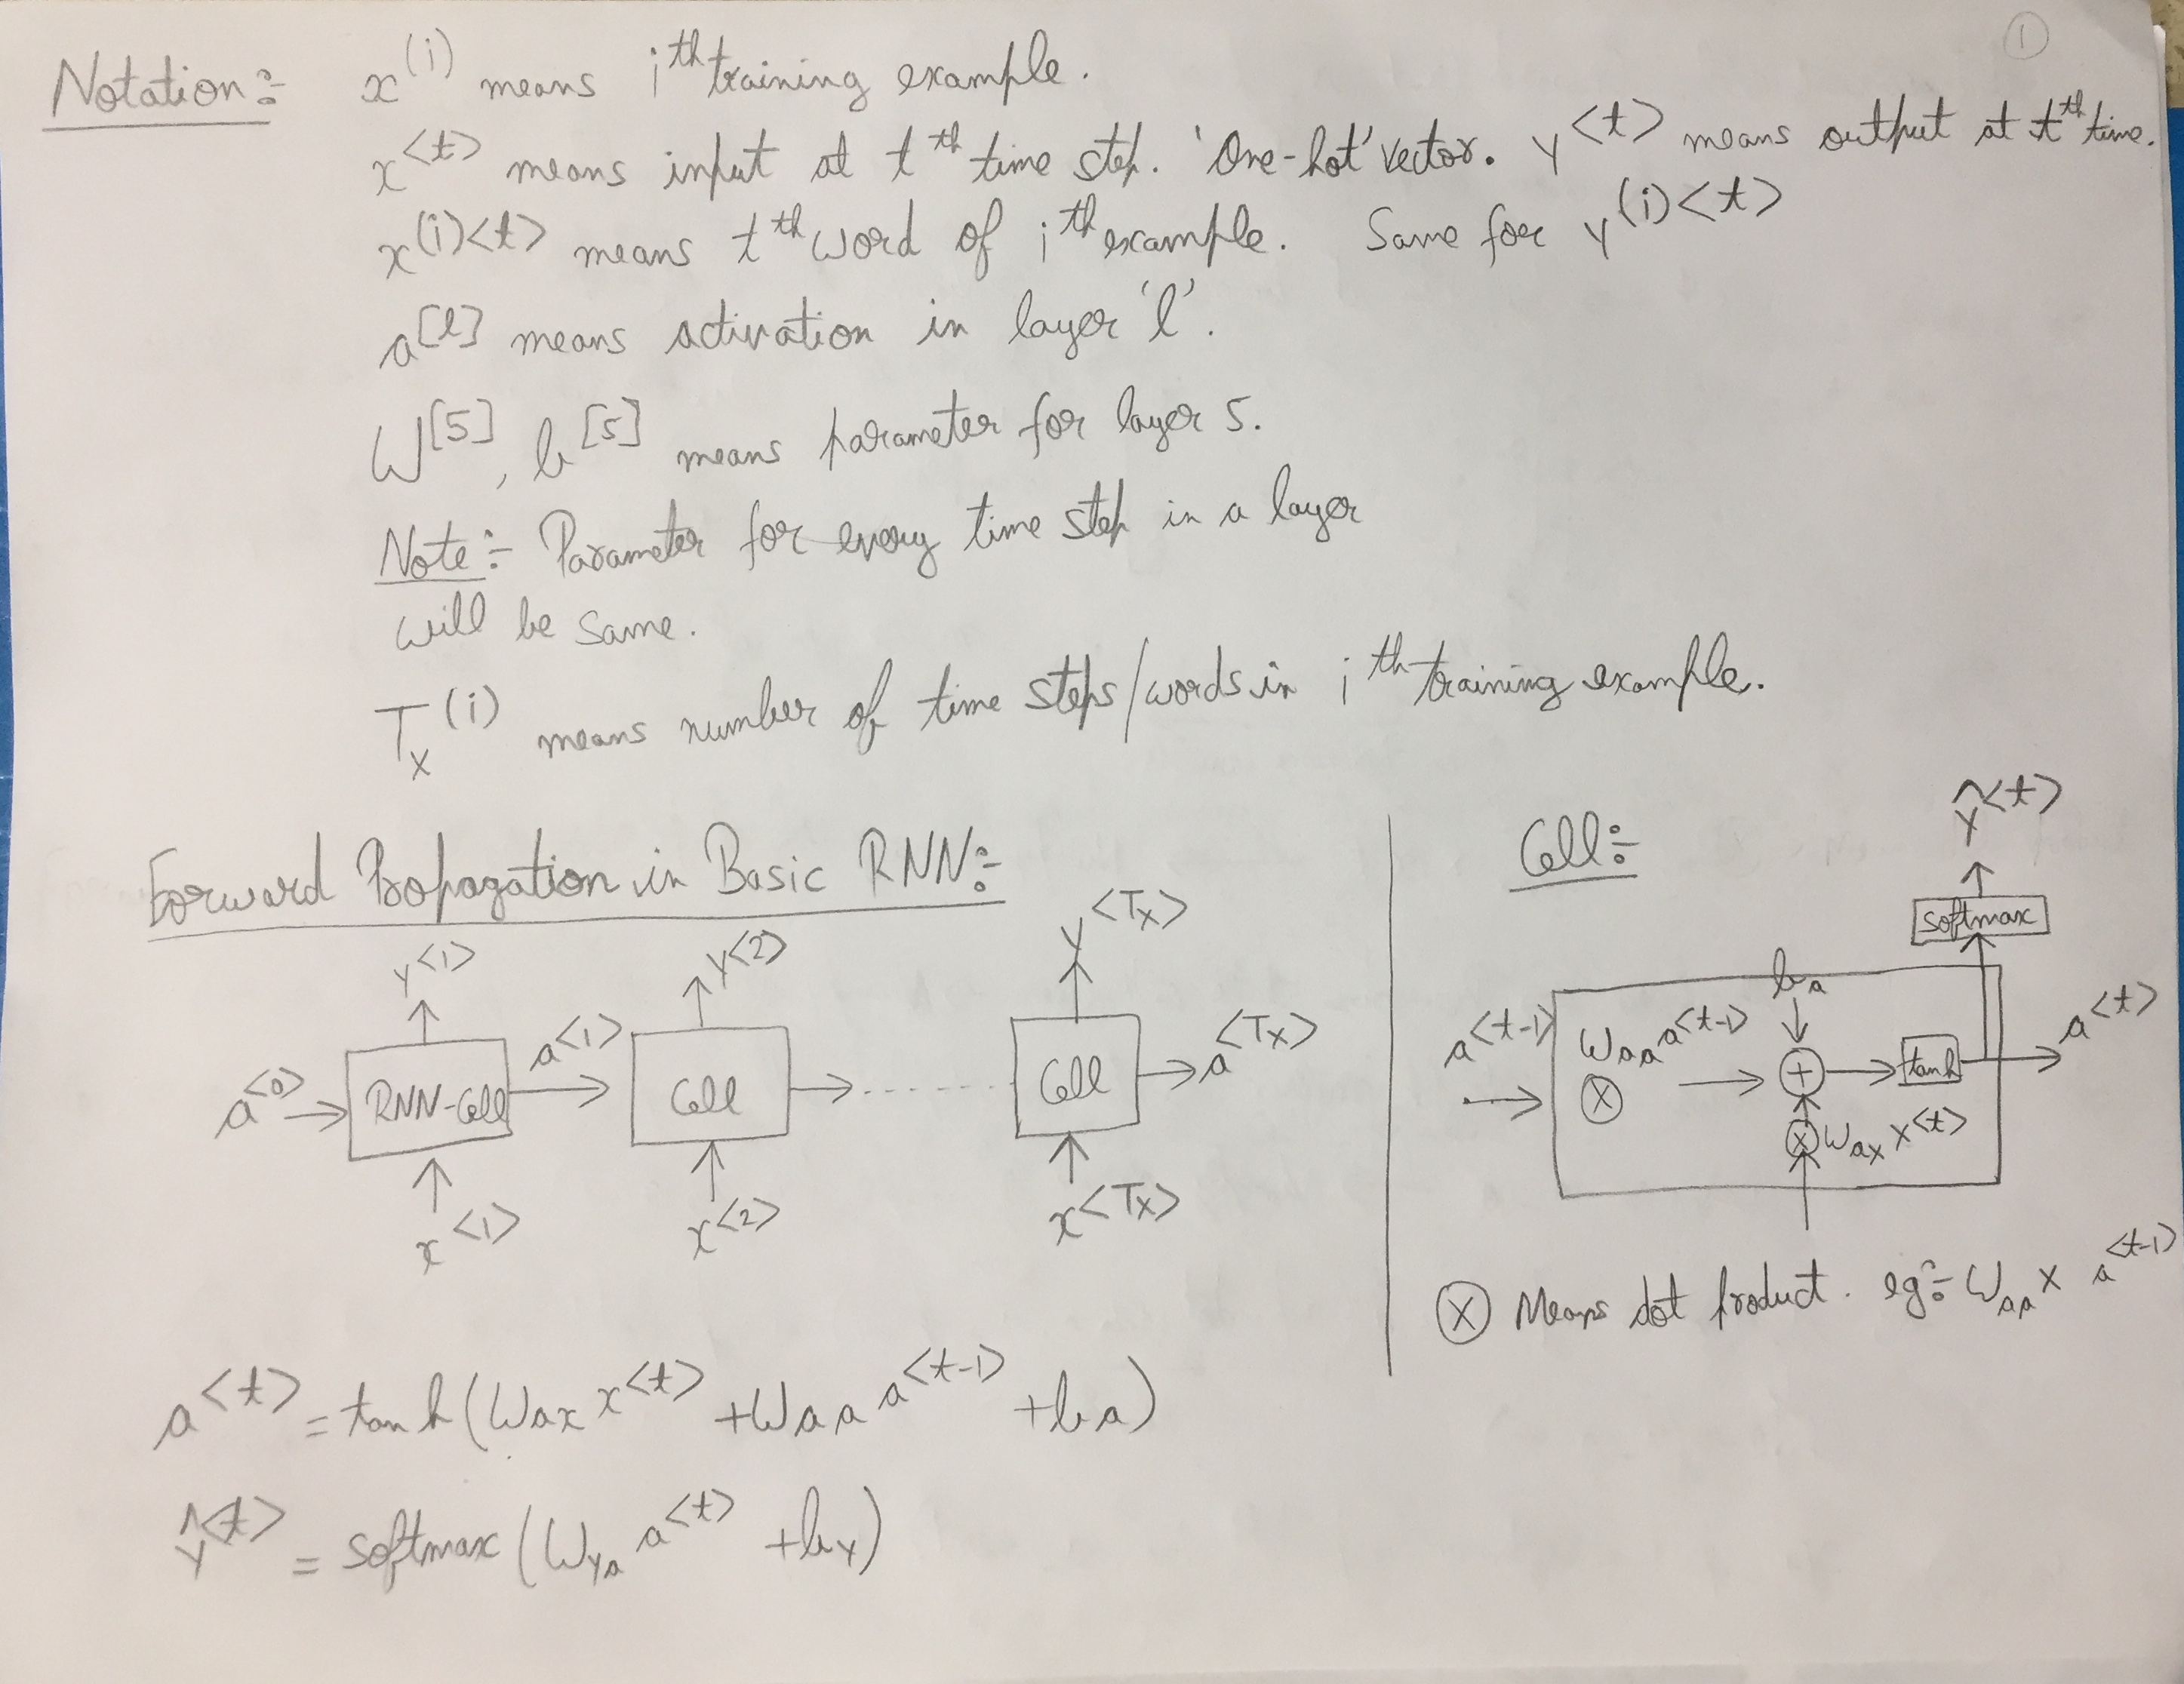 ①
Notation:- x^(i) means i^th training example.
x^<t> means input at t^th time step. 'One-hot' vector. y^<t> means output at t^th time.
x^(i)<t> means t^th word of i^th example. Same for y^(i)<t>
a^[l] means activation in layer 'l'.
W^[5], b^[5] means parameter for layer 5.
Note:- Parameter for every time step in a layer
will be same.
T_x^(i) means number of time steps/words in i^th training example.
Forward Propagation in Basic RNN:-
y^<1> y^<2> y^<Tx>
a^<0> RNN-Cell a^<1> Cell Cell a^<Tx>
x^<1> x^<2> x^<Tx>
a^<t> = tanh(W_ax x^<t> + W_aa a^<t-1> + b_a)
ŷ^<t> = softmax(W_ya a^<t> + b_y)
Cell:-
ŷ^<t>
softmax
b_a
a^<t-1> W_aa a^<t-1> ⊗ + tanh a^<t>
⊗ W_ax x^<t>
⊗ Means dot product. eg:- W_aa × a^<t-1>